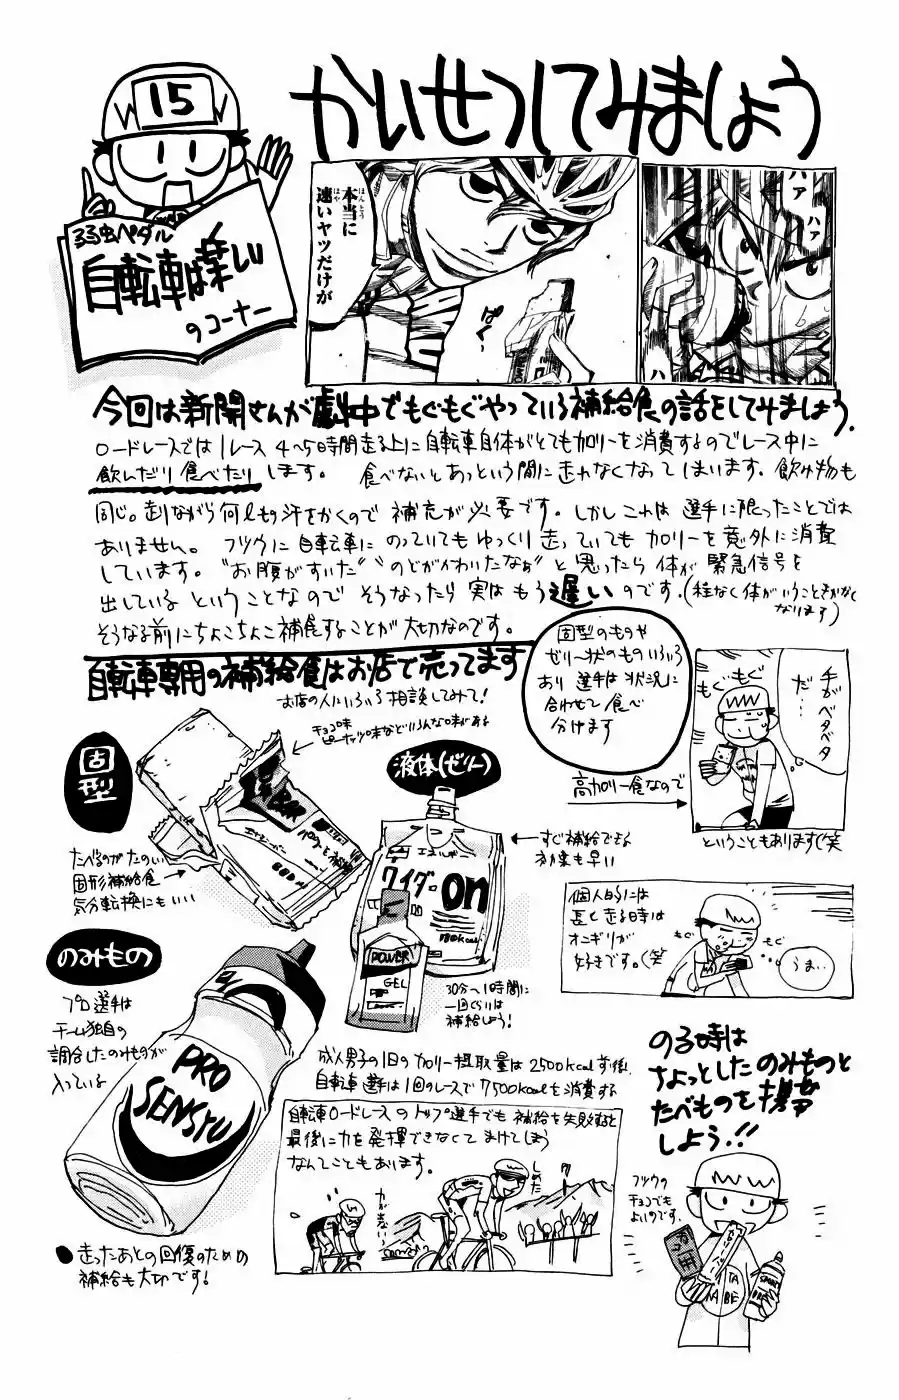 かいせつしてみましょう
15
弱虫ペダル
自転車は楽しい
のコーナー
本当に
ほんとう
速いヤツだけが
はや
ハァ
ハァ
ハァ
今回は新開さんが劇中でもぐもぐやっている補給食の話をしてみましょう.
ロードレースでは1レース 4〜5時間走る上に自転車自体がとてもカロリーを消費するのでレース中に
飲んだり食べたりします。 食べないとあっという間に走れなくなってしまいます。飲み物も
同じ。走りながら何ℓも汗をかくので 補充が必要です。しかしこれは選手に限ったことでは
ありません。 フツウに自転車にのっていてもゆっくり走っていてもカロリーを意外に消費
しています。"お腹がすいた" "のどがかわいたなぁ" と思ったら体が緊急信号を
出しているということなのでそうなったら実はもう遅いのです.(程なく体がいうことをきかなく
なります)
そうなる前にちょこちょこ補食することが大切なのです。
自転車専用の補給食はお店で売ってます
お店の人にいろいろ相談してみて!
固型のものや
ゼリー状のものいろいろ
あり 選手は状況に
合わせて食べ
分けます
もぐもぐ
手がベタベタ
だ…
高カロリー食なので
ということもあります(笑
固型
チョコ味
ピーナッツ味などいろんな味がある
たべるのがたのしい
固形補給食
気分転換にもいい
液体(ゼリー)
エネルギー
ウイダー
on
180kcal
POWER
GEL
すぐ補給できる
効果も早い
30分〜1時間に
一回くらいは
補給しよう!
個人的には
長く走る時は
オニギリが
好きです。(笑
もぐ
もぐ
うま…
のみもの
プロ選手は
チーム独自の
調合したのみものが
入っている
PRO
SENSYU
成人男子の1日のカロリー摂取量は2500kcalです。
自転車選手は1回のレースで7500kcalを消費する
自転車ロードレースのトップ選手でも補給を失敗すると
最後に力を発揮できなくてまけてしまう
なんてこともあります。
力が出ない
しめた
●走ったあとの回復のための
補給も大切です!
のる時は
ちょっとしたのみものと
たべものを携帯
しよう.!!
フツウの
チョコでも
よいのです.
TA
BE